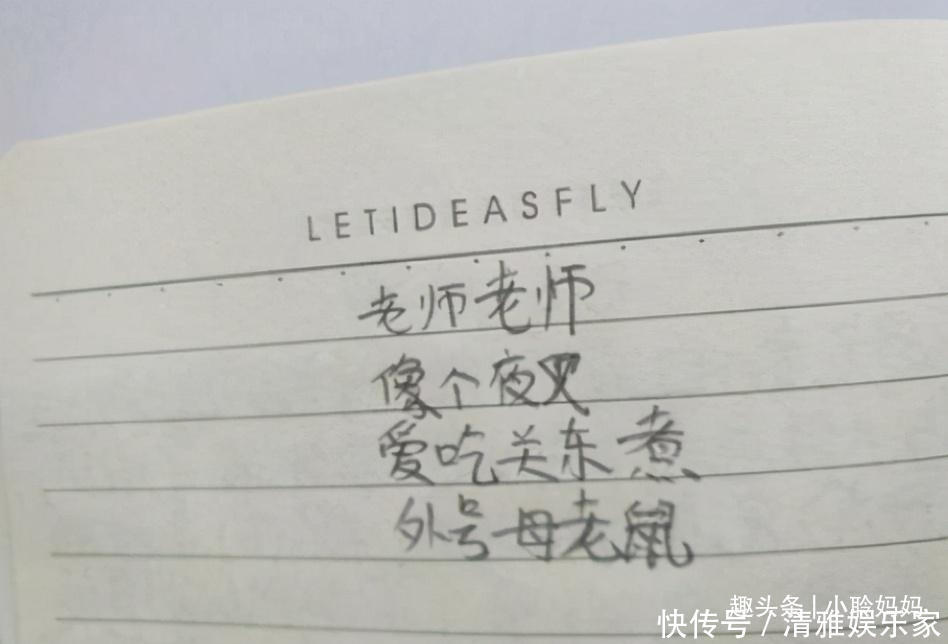 LETIDEASFLY
老师老师
像个夜叉
爱吃关东煮
外号母老鼠
趣头条丨小聆妈妈
快传号 / 清雅娱乐家